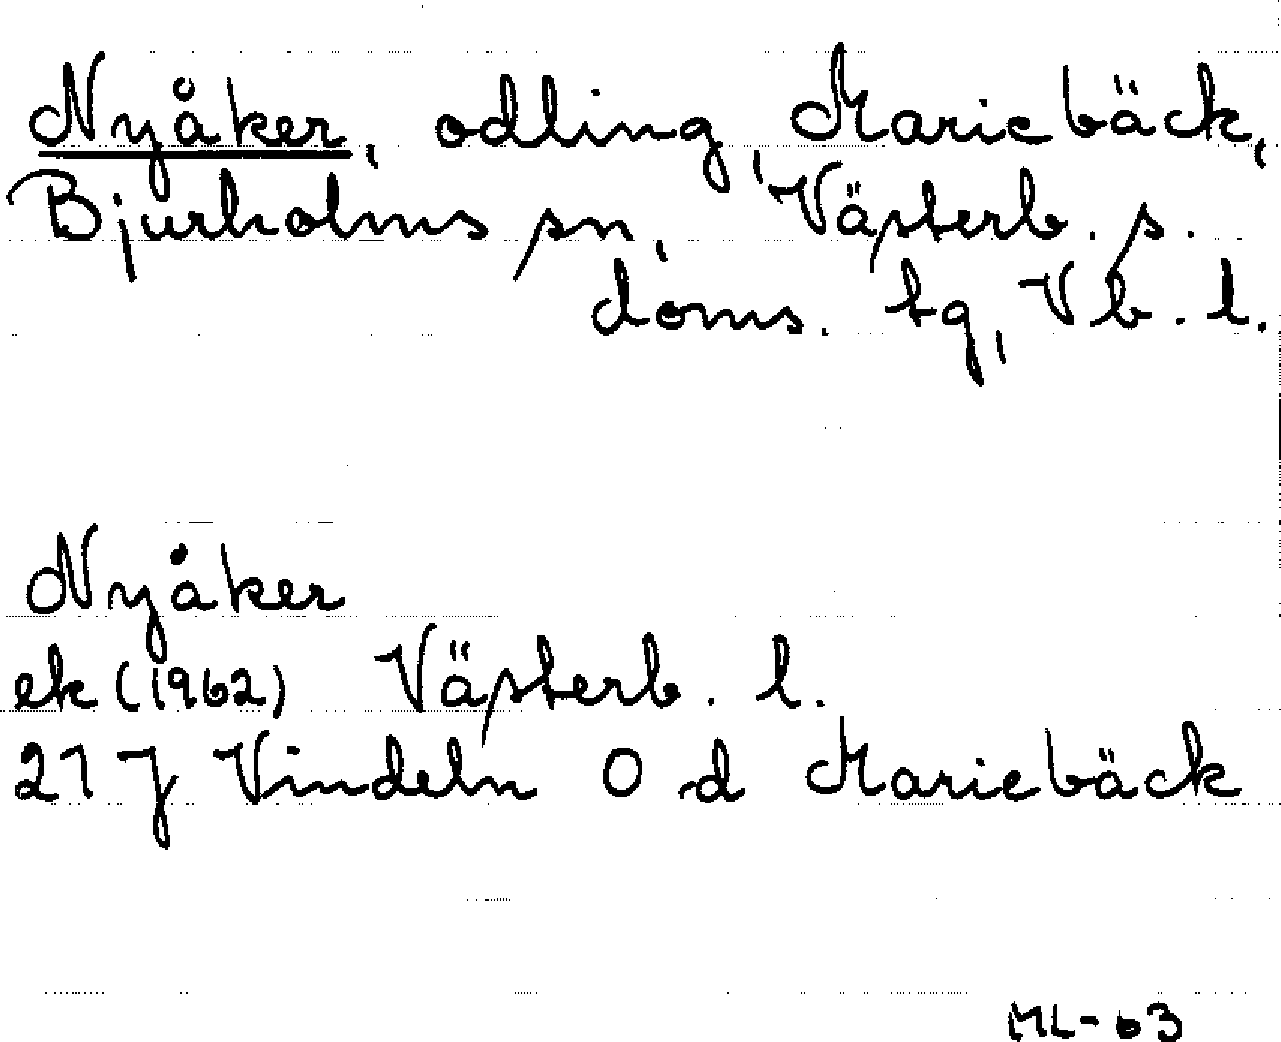 Nyåker, odling, Mariebäck,
Bjurholms sn, Västerb. s.
doms. tg, Vb. l.
Nyåker
ek (1962) Västerb. l.
21 J Vindeln 0 d Mariebäck
ML-63